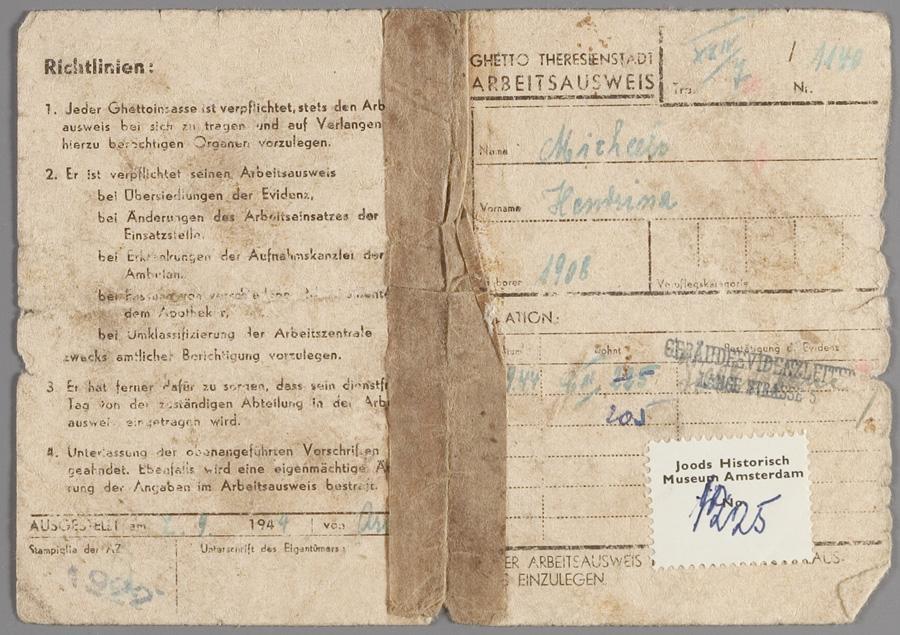 Richtlinien:
1. Jeder Ghettoinsasse ist verpflichtet, stets den Arb
ausweis bei sich zu tragen und auf Verlangen
hierzu berechtigen Organen vorzulegen.
2. Er ist verpflichtet seinen Arbeitsausweis
bei Übersiedlungen der Evidenz,
bei Änderungen des Arbeitseinsatzes der
Einsatzstelle,
bei Erkrankungen der Aufnahmskanzlei der
Ambulan.
bei
dem Apotheker,
bei Umklassifizierung der Arbeitszentrale
zwecks amtlicher Berichtigung vorzulegen.
3 Er hat ferner dafür zu sorgen, dass sein dienstf
Tag von der zuständigen Abteilung in der Arb
ausweis eingetragen wird.
4. Unterlassung der obenangeführten Vorschriften
geahndet. Ebenfalls wird eine eigenmächtige Ä
rung der Angaben im Arbeitsausweis bestraft.
AUSGESTELLT am 2. 9 1944 von
Stampiglie der AZ. Unterschrift des Eigentümers:
GHETTO THERESIENSTADT
ARBEITSAUSWEIS
XXIV/7 / 1140
Tra. Nr.
Name Micheels
Vorname Hendrina
borer 1908 Verpflegskategorie
ATION:
tum wohnt Bestätigung d. Evidenz
GEBÄUDEEVIDENZLEITER
LANGE STRASSE 5
9.44
205
Joods Historisch
Museum Amsterdam
No.
1225
ER ARBEITSAUSWEIS AUS-
S EINZULEGEN.